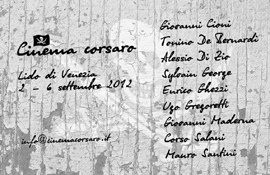 Cinema corsaro
Lido di Venezia
2 - 6 settembre 2012
info@cinemacorsaro.it
Giovanni Cioni
Tonino De Bernardi
Alessio Di Zio
Sylvain George
Enrico Ghezzi
Ugo Gregoretti
Giovanni Maderna
Corso Salani
Mauro Santini